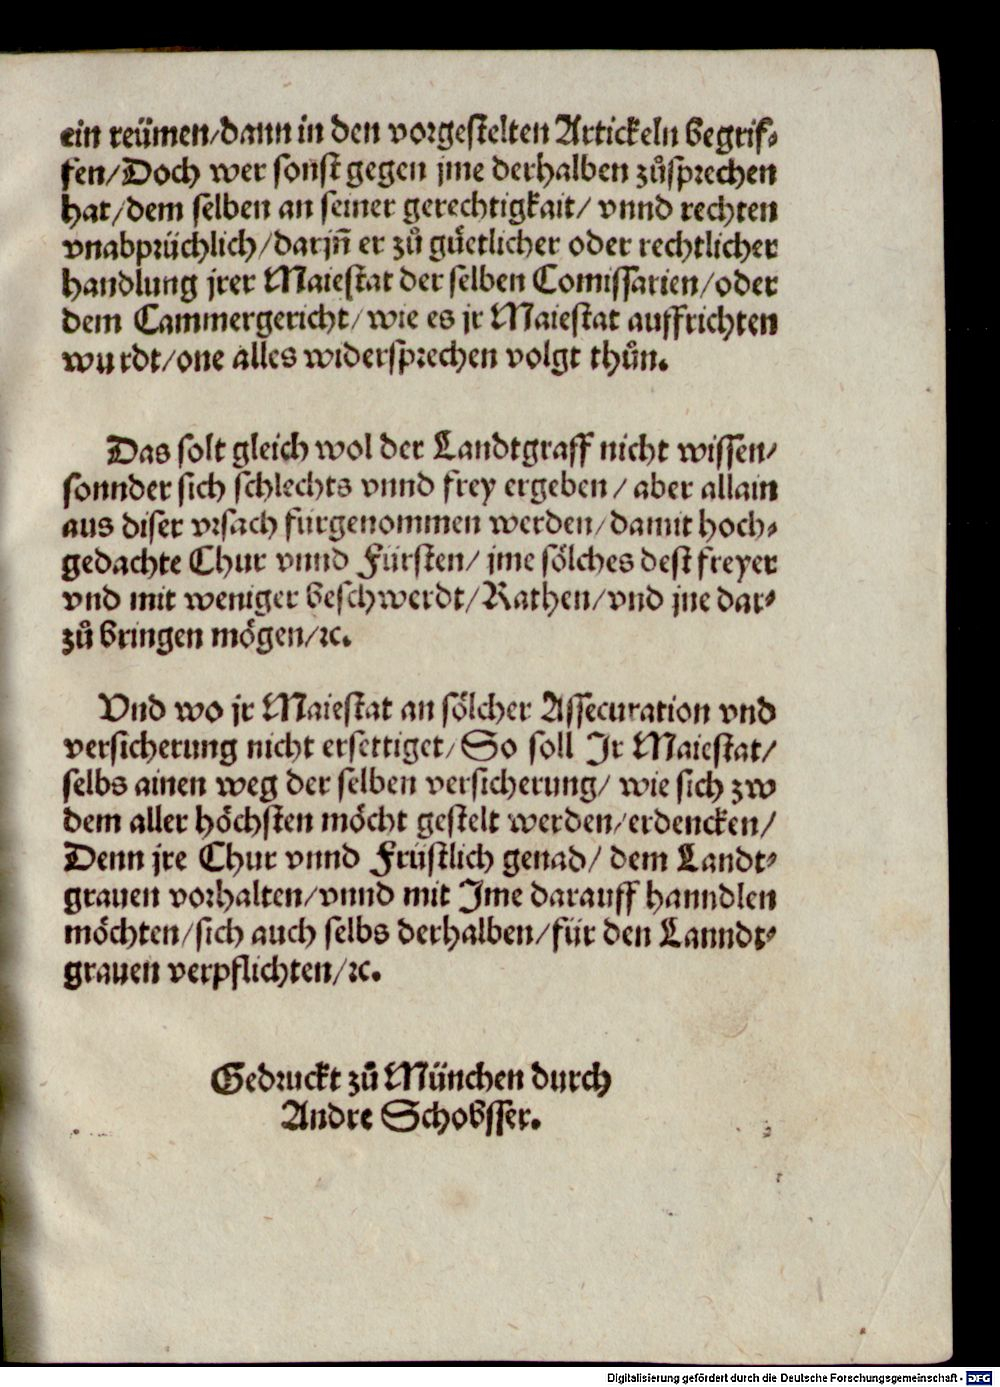 ein reümen/dann in den vorgestelten Artickeln begrif⸗
fen/Doch wer sonst gegen jme derhalben zůsprechen
hat/dem selben an seiner gerechtigkait/ vnnd rechten
vnabprüchlich/darjñ er zů gůetlicher oder rechtlicher
handlung jrer Maiestat der selben Comissarien/oder
dem Cammergericht/wie es jr Maiestat auffrichten
wurdt/one alles widersprechen volgt thůn.
Das solt gleich wol der Landtgraff nicht wissen/
sonnder sich schlechts vnnd frey ergeben/ aber allain
aus diser vrsach fürgenommen werden/damit hoch⸗
gedachte Chur vnnd Fürsten/ jme sölches dest freyer
vnd mit weniger beschwerdt/Rathen/vnd jne dar⸗
zů bringen mögen/ꝛc.
Vnd wo jr Maiestat an sölcher Assecuration vnd
versicherung nicht ersettiget/So soll Jr Maiestat/
selbs ainen weg der selben versicherung/ wie sich zw
dem aller höchsten möcht gestelt werden/erdencken/
Denn jre Chur vnnd Früstlich genad/ dem Landt⸗
grauen vorhalten/vnnd mit Jme darauff hanndlen
möchten/sich auch selbs derhalben/für den Lanndt⸗
grauen verpflichten/ꝛc.
Gedruckt zů München durch
Andre Schobsser.
Digitalisierung gefördert durch die Deutsche Forschungsgemeinschaft - DFG